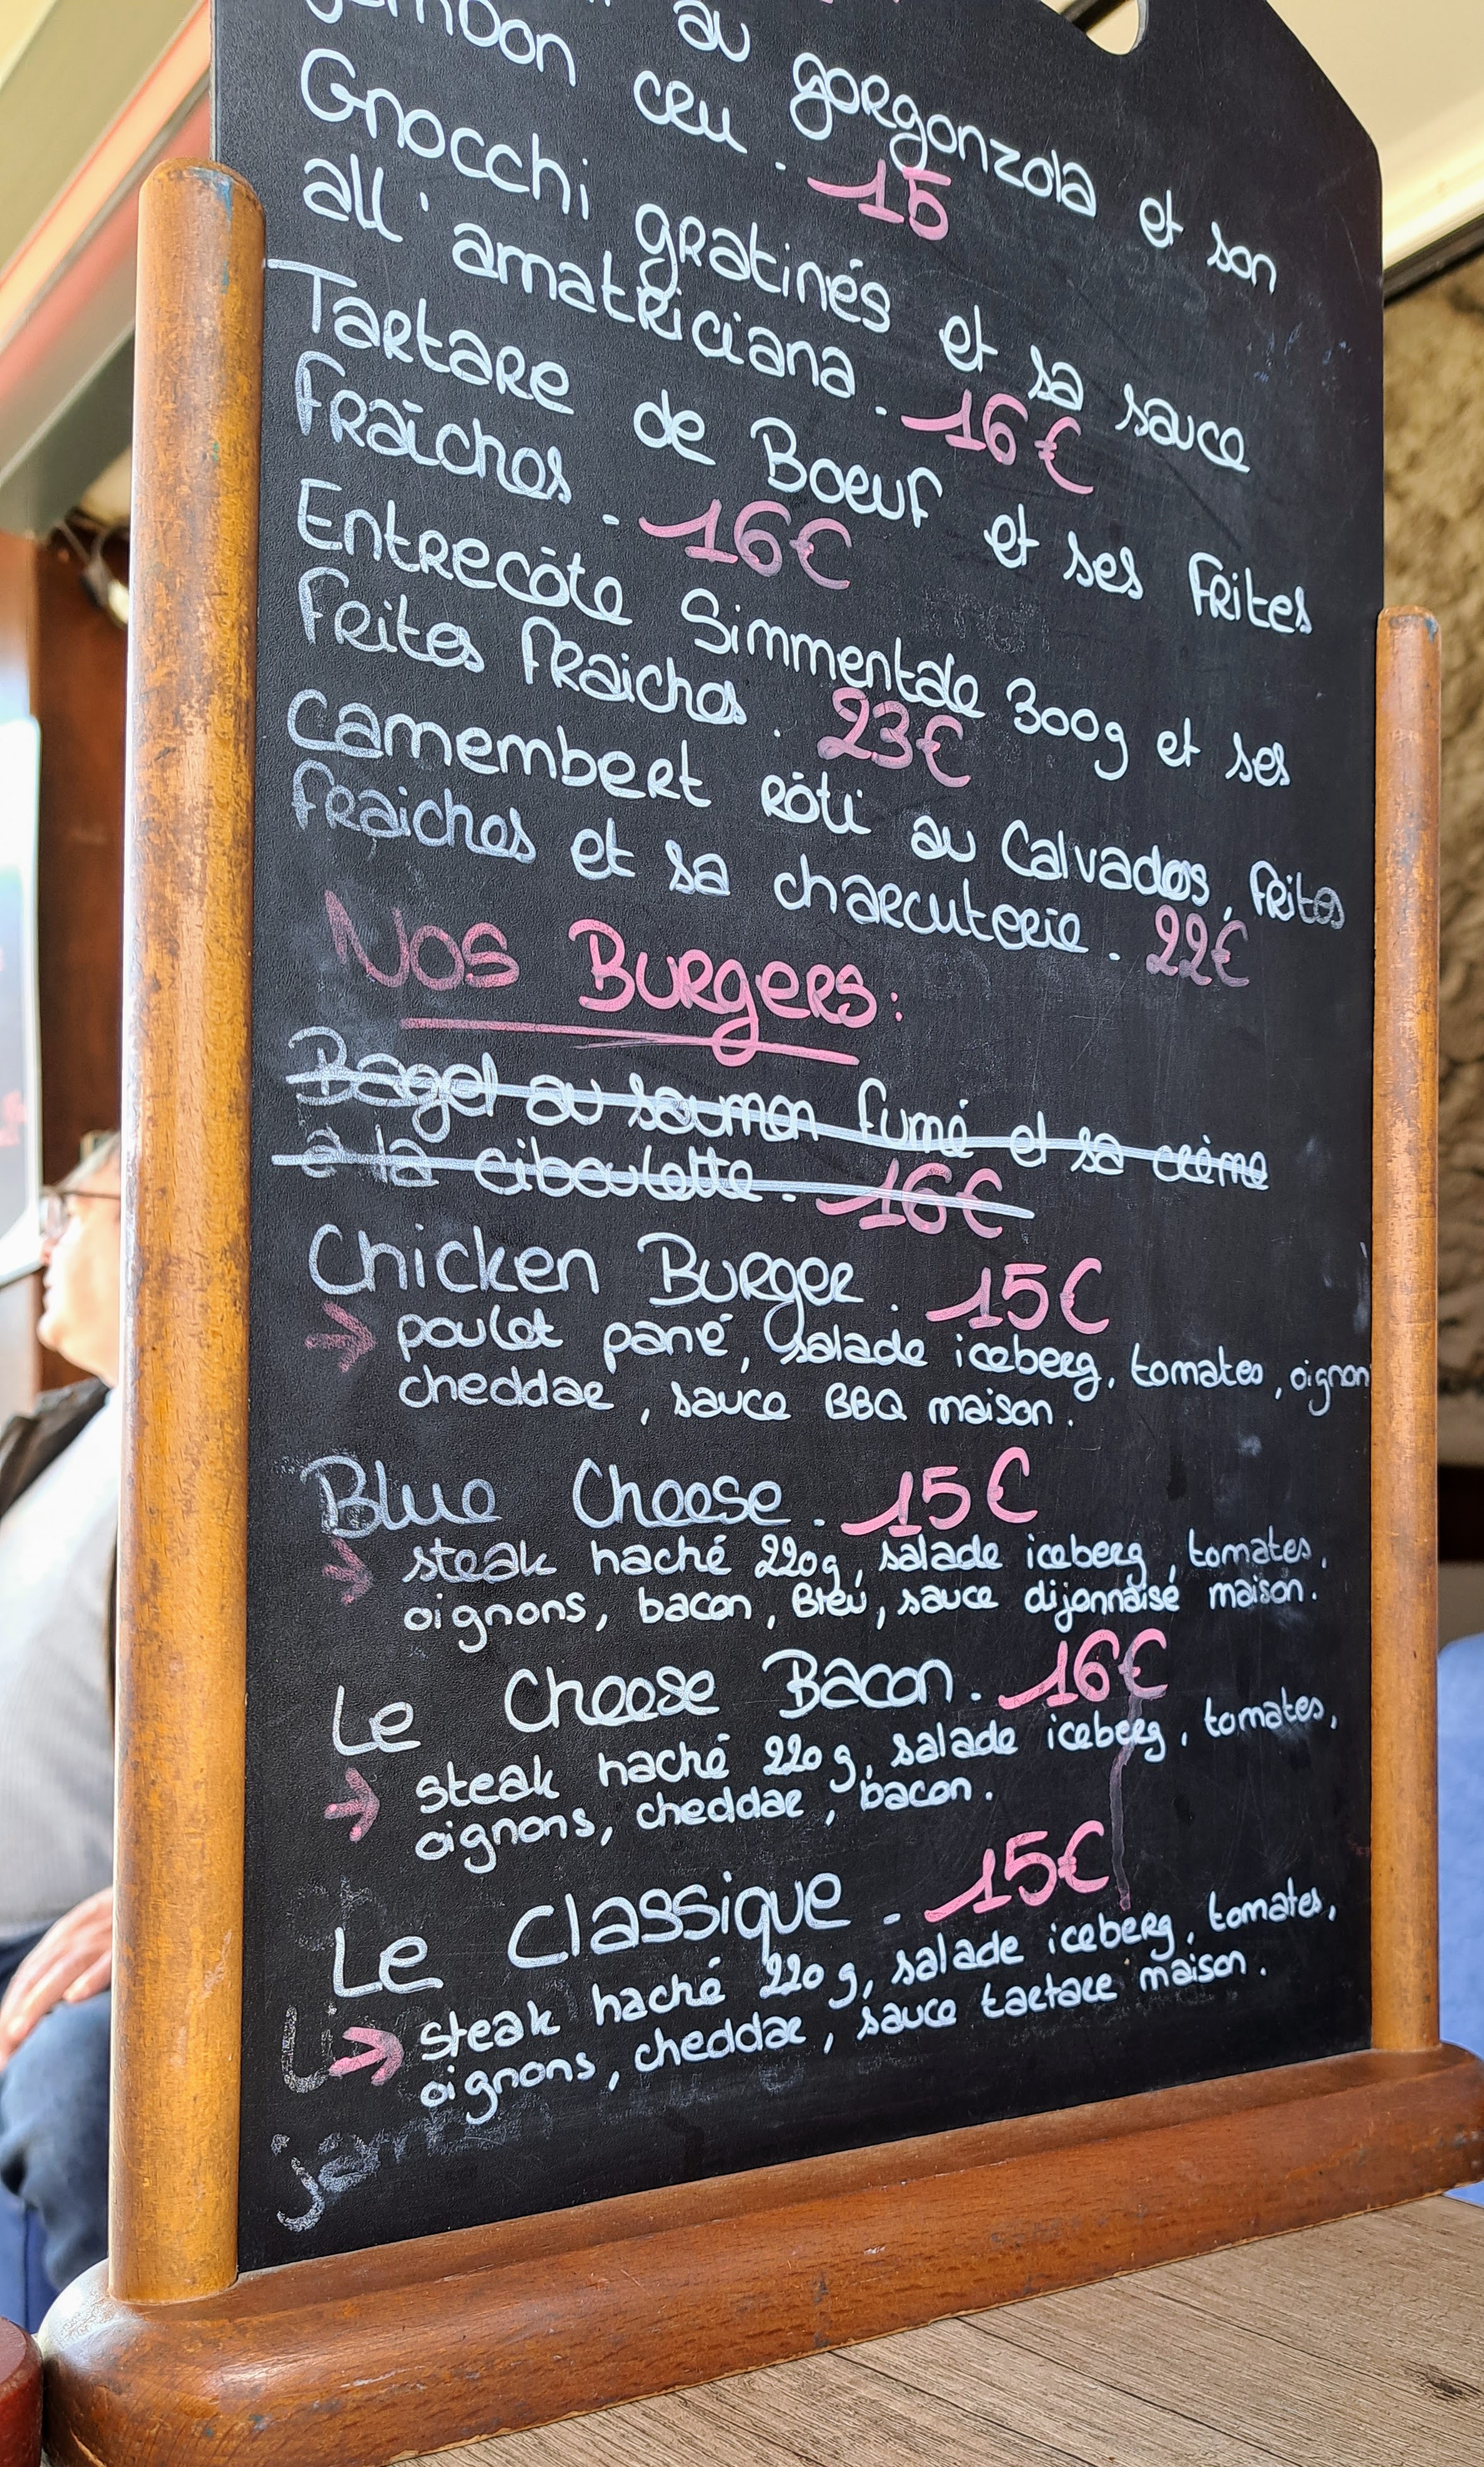 au gorgonzola et son
jambon cru . 15
Gnocchi gratinés et sa sauce
all'amatriciana . 16€
Tartare de Boeuf et ses Frites
Fraîches . 16€
Entrecôte Simmentale 300g et ses
Frites Fraiches . 23€
Camembert rôti au Calvados, Frites
Fraiches et sa charcuterie . 22€
Nos Burgers :
Bagel au saumon fumé et sa crème
à la ciboulette . 16€
Chicken Burger . 15€
→ poulet pané, salade iceberg, tomates, oignon
cheddar, sauce BBQ maison.
Blue Cheese . 15€
→ steak haché 220g, salade iceberg, tomates,
oignons, bacon, Bleu, sauce dijonnaise maison.
Le Cheese Bacon . 16€
→ steak haché 220g, salade iceberg, tomates,
oignons, cheddar, bacon.
Le Classique . 15€
→ steak haché 220g, salade iceberg, tomates,
oignons, cheddar, sauce tartare maison.